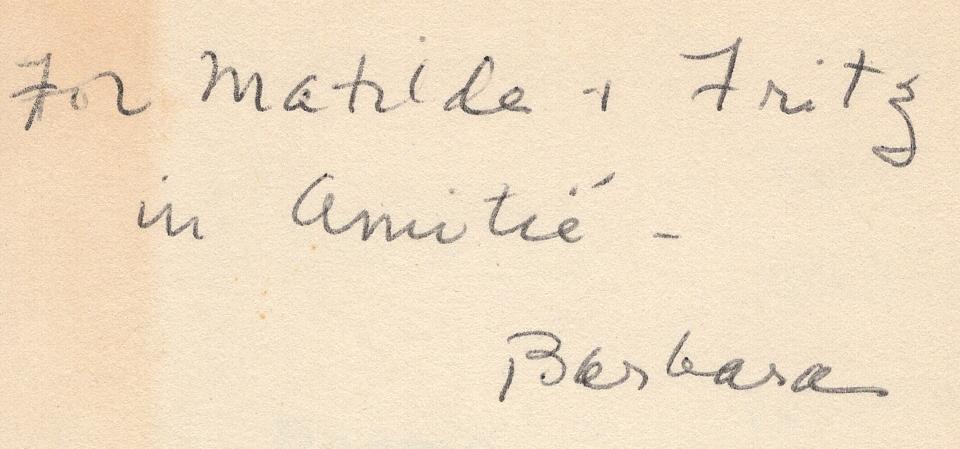 For Matilde + Fritz
in Amitié -
Barbara